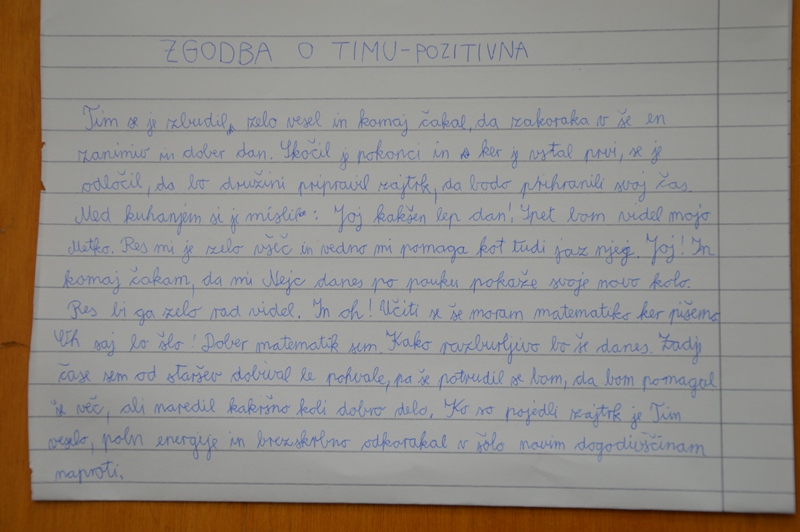 ZGODBA O TIMU-POZITIVNA
Tim se je zbudil, zelo vesel in komaj čakal, da zakoraka v še en
zanimiv in dober dan. Skočil je pokonci in ker je vstal prvi, se je
odločil, da bo družini pripravil zajtrk, da bodo prihranili svoj čas.
Med kuhanjem si je mislil: Joj kakšen lep dan! Spet bom videl mojo
Metko. Res mi je zelo všeč in vedno mi pomaga kot tudi jaz njej. Joj! In
komaj čakam, da mi Nejc danes po pouku pokaže svoje novo kolo.
Res bi ga zelo rad videl. In oh! Učiti se še moram matematiko ker pišemo.
Uh saj bo šlo! Dober matematik sem. Kako razburljivo bo še danes. Zadnje
čase sem od staršev dobival le pohvale, pa še potrudil se bom, da bom pomagal
še več, ali naredil kakršno koli dobro delo. Ko so pojedli zajtrk je Tim
veselo, poln energije in brezskrbno odkorakal v šolo novim dogodivščinam
naproti.